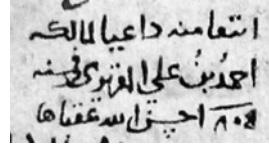 انتقا منه داعيا لمالكه
احمد بن علي المقريزي في سنه
احسن الله عقباها